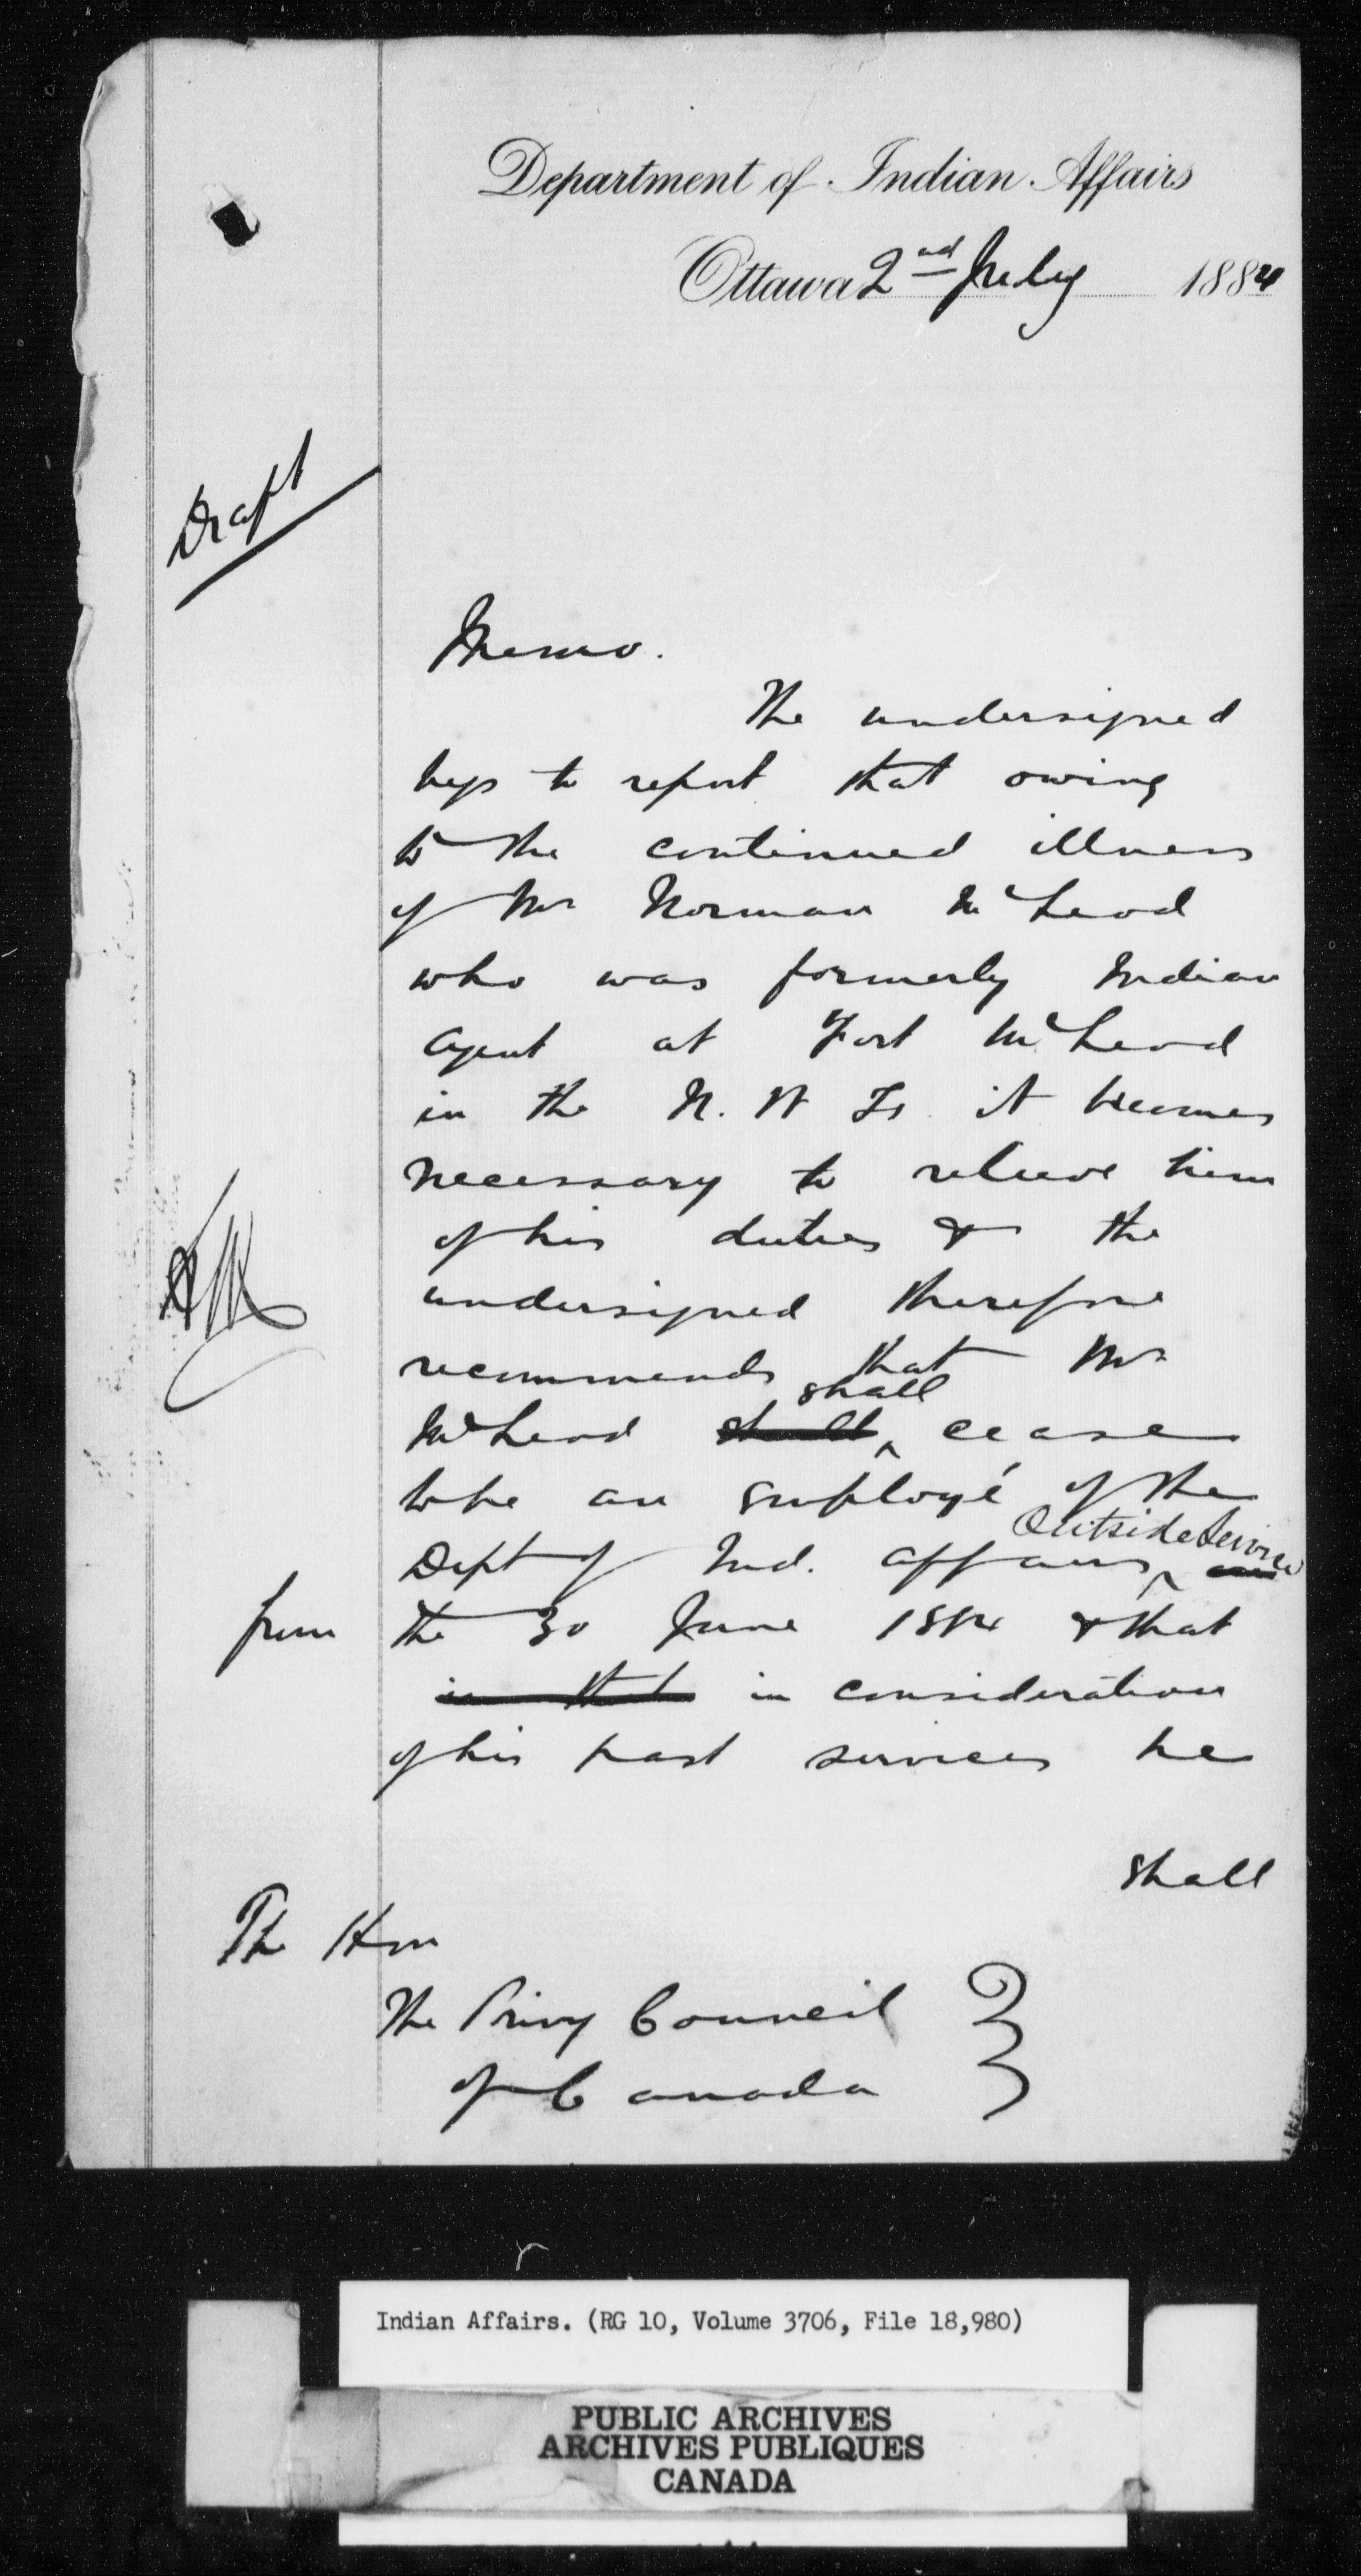 Department of Indian Affairs
Ottawa 2nd July 1884
Draft
Memo.
The undersigned
begs to report that owing
to the continued illness
of Mr Norman McLeod
who was formerly Indian
Agent at Fort McLeod
in the N. W Ts. it becomes
necessary to relieve him
of his duties & the
undersigned therefore
recommends that Mr
shall
McLeod shall cease
to be an employé of the
Outside Service
Dept of Ind. Affairs
from the 30 June 1884 & that
in that in consideration
of his past services he
shall
The Hon
The Privy Council
of Canada
Indian Affairs. (RG 10, Volume 3706, File 18,980)
PUBLIC ARCHIVES
ARCHIVES PUBLIQUES
CANADA